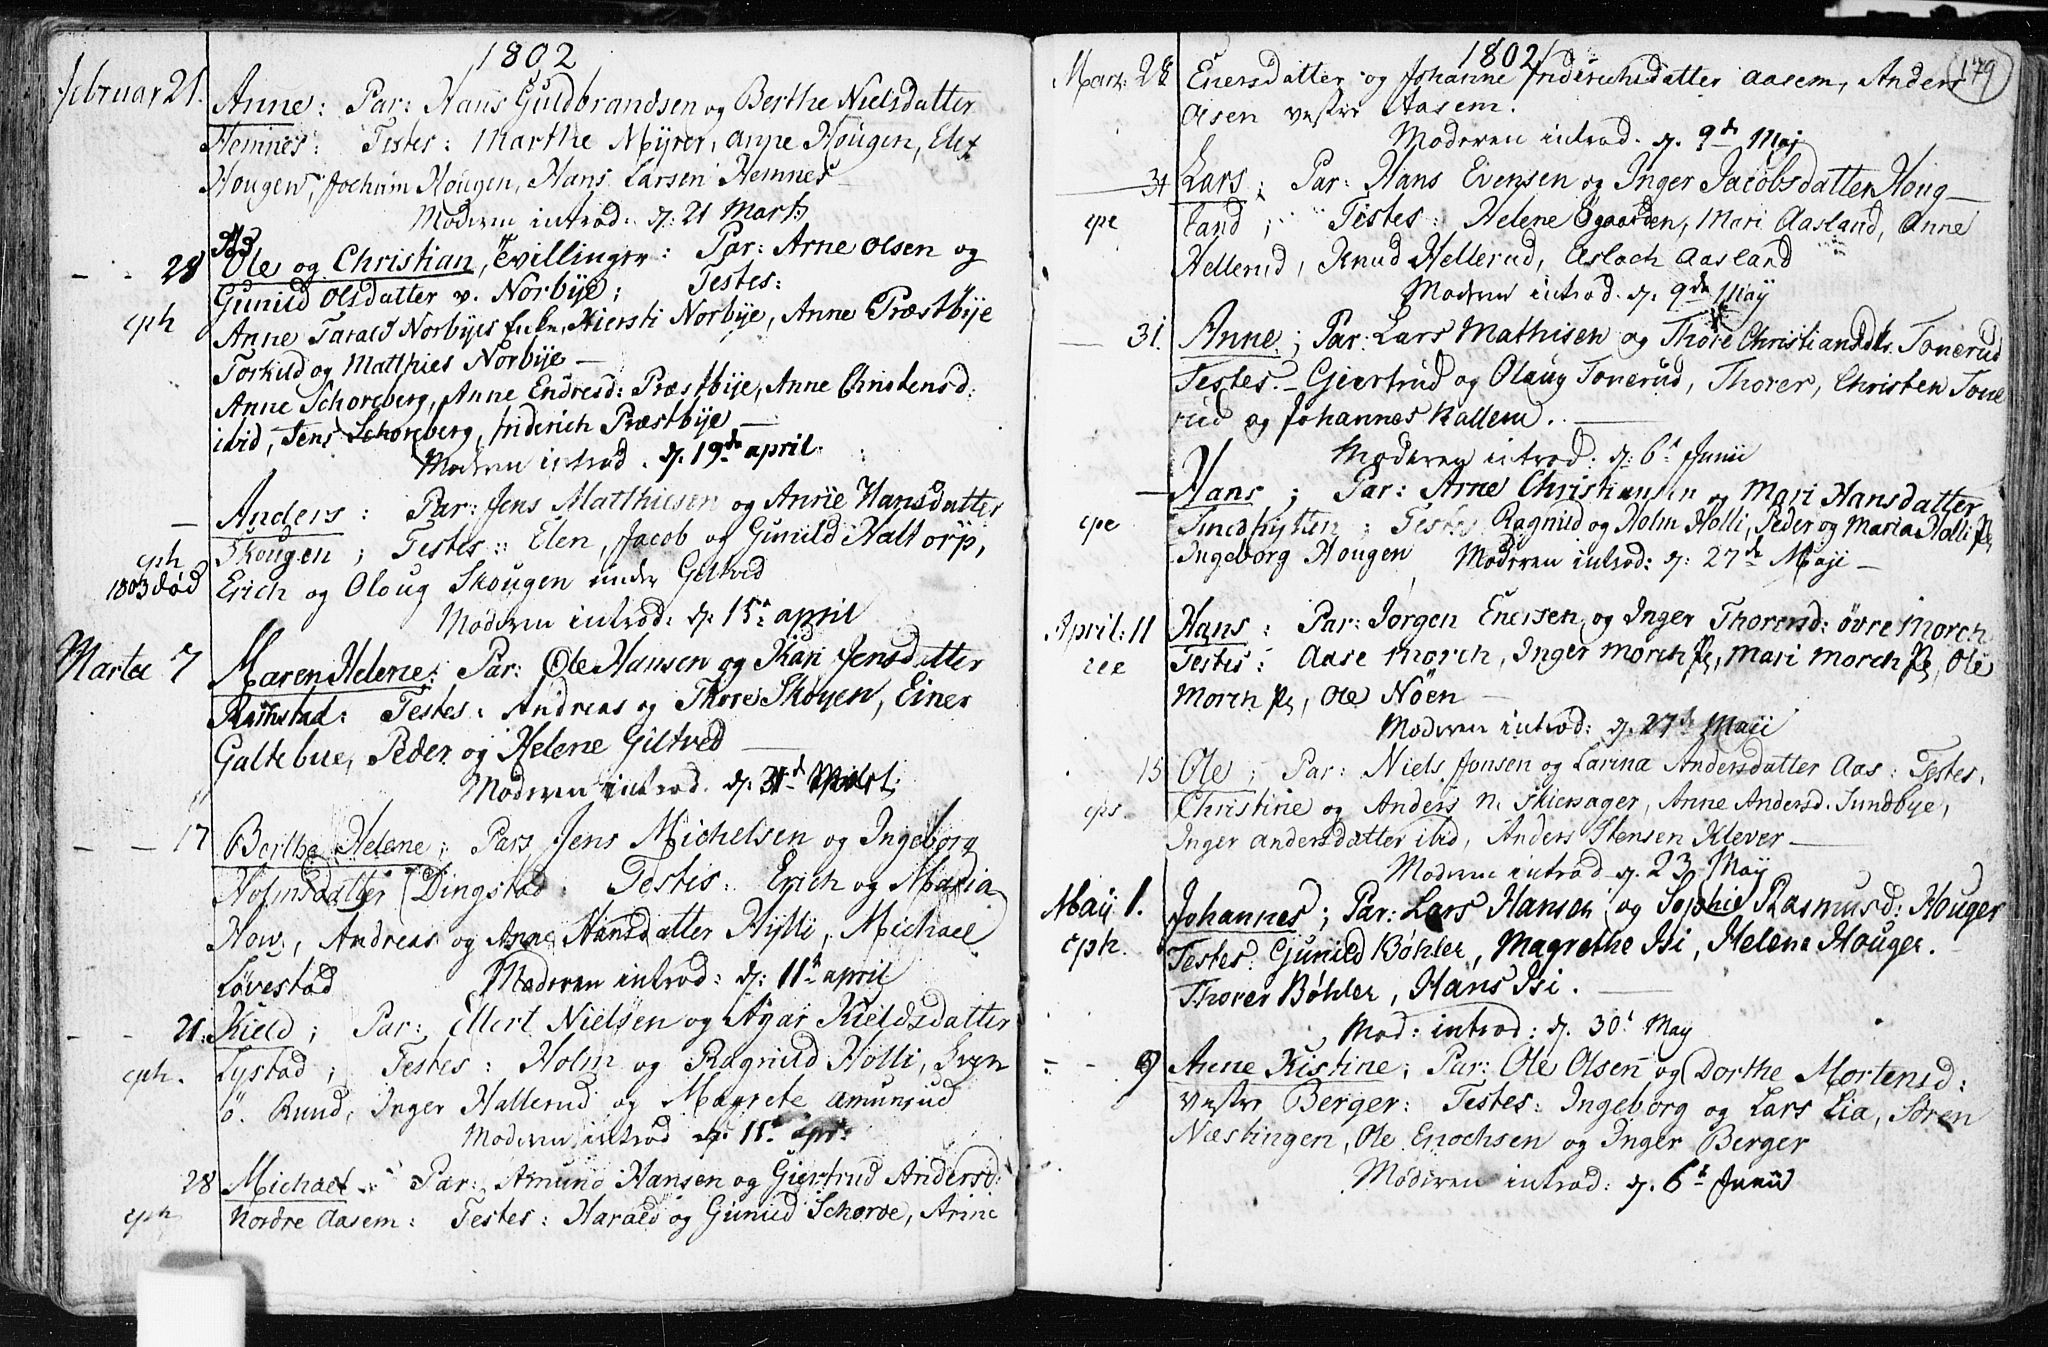 1802
Februar 21. Anne: Par: Hans Guldbrandsen og Berthe Nielsdatter
Hemnes: Testes: Marthe Myrer, Anne Hougen, Elef
Hougen, Jochum Hougen, Hans Larsen Hemnes
Moderen introd. d: 21 Marts
- - 28 Ole og Christian, Tvillinger: Par: Arne Olsen og
Gunild Olsdatter v. Norbye; Testes:
cph Anne Tarald Norbyes Enke, Kiersti Norbye, Anne Præstbye
Torkild og Matthies Norbye —
Anne Schoreberg, Anne Endresd: Præstbye, Anne Christensd:
ibid, Jens Schoreberg, Friderich Præstbye
Moderen introd. d: 19de april.
— Anders: Par: Jens Matthiesen og Anne Hansdatter
cph Skougen; Testes: Elen, Jacob og Gunild Haltorp,
1803 død Erich og Oloug Skougen under Giltved
Moderen introd: d: 15t april
Martii 7 Maren Helene: Par: Ole Hansen og Kari Jensdatter
Ramstad: Testes: Andreas og Thore Skøyen, Einer
Galtebue, Peder og Helene Giltved —
Moderen introd. d: 31d Mart:
- - 17 Berthe Helene; Pars Jens Michelsen og Ingeborg
Holmsdatter Dingstad: Testis: Erich og Maria
How, Andreas og Anne Hansdatter Hylli, Michael
Løvestad Moderen introd: d: 11t april
- - 21: Kield; Par: Ellert Nielsen og Agar Kieldsdatter
cph. Lystad; Testes: Holm og Ragnild Holli, Even
ö. Ruud, Inger Hallerud og Magrete Amunrud
Moderen introd d: 11t apr:
28 Michael: Par: Amund Hansen og Giertrud Andersd:
cph Nordre Aasem: Testes: Harald og Gunild Schorde, Arine
179
1802
Mars: 28 Enersdatter og Johanne Friderichsdatter Aasem, Anders
Olsen vestre Aasem.
Moderen introd. d. 9de Maj
— 31 Lars; Par: Hans Evensen og Inger Jacobsdatter Houg—
cpe land; Testes: Helene Øgaarden, Mari Aasland, Anne
Hellerud, Knud Hellerud, Asloch Aasland
Moderen introd. d. 9de May
— 31. Anne; Par: Lars Mathisen og Thore Christiansdtr. Tonerud
Testes. Giertrud og Oloug Tonerud, Thorer, Christen Tone
rud og Johannes Kallem. —
Moderen introd: d: 6t Junii
— Hans; Par: Arne Christiansen og Mari Hansdatter
cpe Smedhytten; Testes Ragnild og Holm Holli, Peder og Maria Holli
Ingeborg Hougen Moderen introd: d: 27de Maji —
April: 11 Hans: Par: Jørgen Enersen og Inger Thorersd: övre Morch
Testes: Aase Morch, Inger Morch, Mari Morch, Ole
Morch, Ole Nöen —
Moderen introd: d. 27de Maii
15 Ole; Par: Niels Jonsen og Larina Andersdatter Aas: Testes,
cps. Christine og Anders n. Skiersager, Anne Andersd. Sundbye,
Inger Andersdatter ibid, Anders Stensen Klever —
Moderen introd d. 23 May
Maij 1. Johannes; Par: Lars Hansen og Sophie Rasmusd: Houger
cph. Testes: Gunild Bøhler, Magrethe Isi, Helene Houger.
Thorer Bøhler, Hans Isi. —
Mod: introd: d. 30t May
- - 9 Anne Kistine; Par: Ole Olsen og Dorthe Mortensd:
vestre Berger: Testes: Ingeborg og Lars Lia, Søren
Næstingen, Ole Enochsen og Inger Berger
Moderen introd: d. 6t Junii